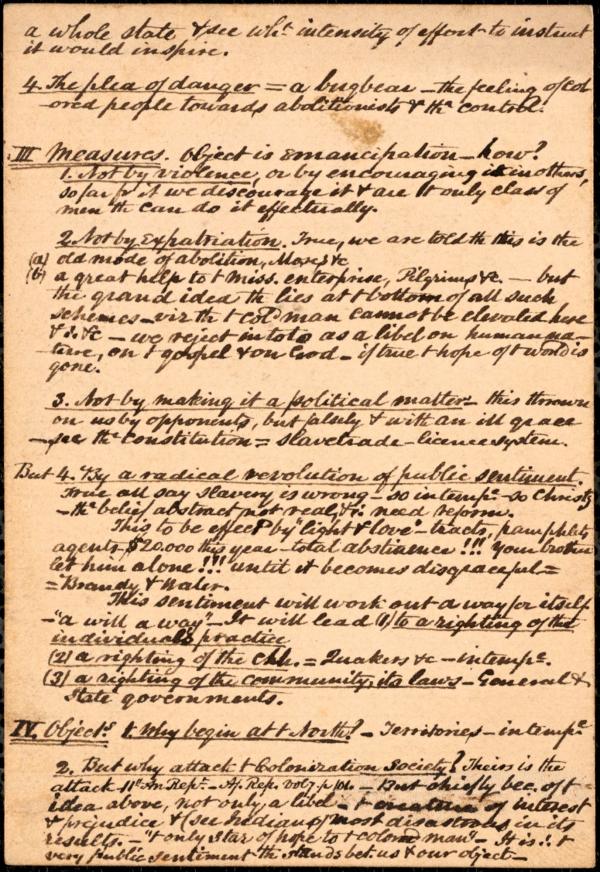 a whole state & see wht intensity of effort to instruct
it would inspire.
4. The plea of danger = a bugbear - the feeling of col
ored people towards abolitionists & thr control.
III Measures. Object is emancipation - how?
1. Not by violence, or by encouraging it in others,
so far fr it we discourage it & are t only class of
men th can do it effectually.
2. Not by Expatriation. True, we are told th this is the
(a) old mode of abolition, Moses &c
(b) a great help to t miss. enterprise, Pilgrims &c. - but
the grand idea th lies at t bottom of all such
schemes - viz th t cold man cannot be elevated here
& &c - we reject in toto as a libel on human na-
ture, on t gospel & on God - if true t hope of t world is
gone.
3. Not by making it a political matter - this thrown
on us by opponents, but falsely & with an ill grace
- see thr constitution = slavetrade - licence system.
But 4. By a radical revolution of public sentiment.
True all say slavery is wrong - so intempe - so Christy
- thr belief abstract not real, & need reform.
This to be effecd by "light & love" - tracts, pamphlets
agents - $20.000 this year - total abstinence!!! Your brother
let him alone!!! until it becomes disgraceful =
= Brandy & Water.
This sentiment will work out a way for itself
- "a will a way" - It will lead (1) to a righting of the
individual's practice
(2) a righting of the chh. = Quakers &c - intempe.
(3) a righting of the community, its laws - General &
State governments.
IV. Objects 1. Why begin at t North? - Territories - intempe
2. But why attack t Colonization Society? Theirs is the
attack - 11th An. Rept. - Af. Rep. Vol 7. p 101. - But chiefly bec. of t
idea above, not only a libel - t creature of interest
& prejudice & (see Indians) most disastrous in its
results. - "t only star of hope to t colored man" - It is t
very public sentiment tht stands bet. us & our object -